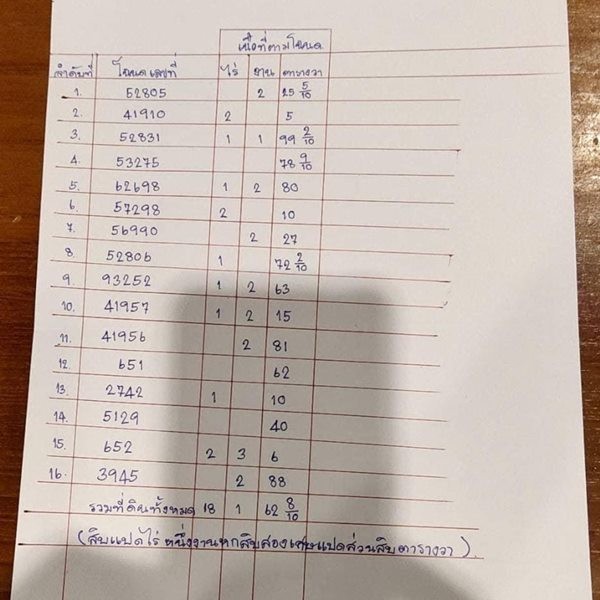 เนื้อที่ตามโฉนด
ลำดับที่ โฉนดเลขที่ ไร่ งาน ตารางวา
1. 52805 2 25 5/10
2. 41910 2 5
3. 52831 1 1 99 2/10
4. 53275 78 9/10
5. 62698 1 2 80
6. 57298 2 10
7. 56990 2 27
8. 52806 1 72 2/10
9. 93252 1 2 63
10. 41957 1 2 15
11. 41956 2 81
12. 651 62
13. 2742 1 10
14. 5129 40
15. 652 2 3 6
16. 3945 2 88
รวมที่ดินทั้งหมด 18 1 62 8/10
(สิบแปดไร่ หนึ่งงานหกสิบสองเศษแปดส่วนสิบตารางวา)